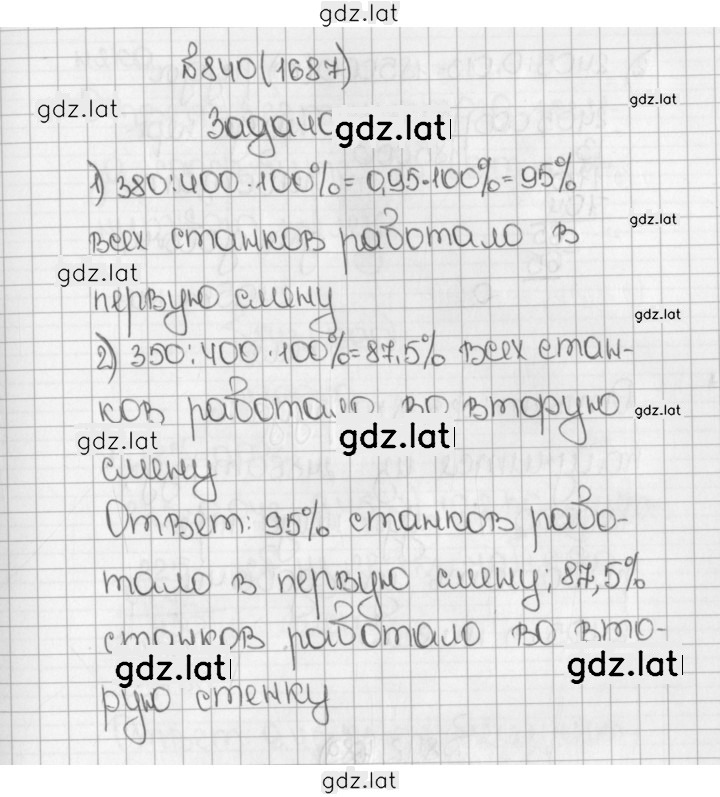 gdz.lat
№840(1687)
gdz.lat gdz.lat
gdz.lat
1) 380:400·100%=0,95·100%=95%
всех станков работало в gdz.lat
gdz.lat
первую смену gdz.lat
2) 350:400·100%=87,5% всех стан-
ков работало во вторую gdz.lat
gdz.lat gdz.lat
смену
Ответ: 95% станков рабо-
тало в первую смену; 87,5%
станков работало во вто-
gdz.lat gdz.lat
рую стенку
gdz.lat